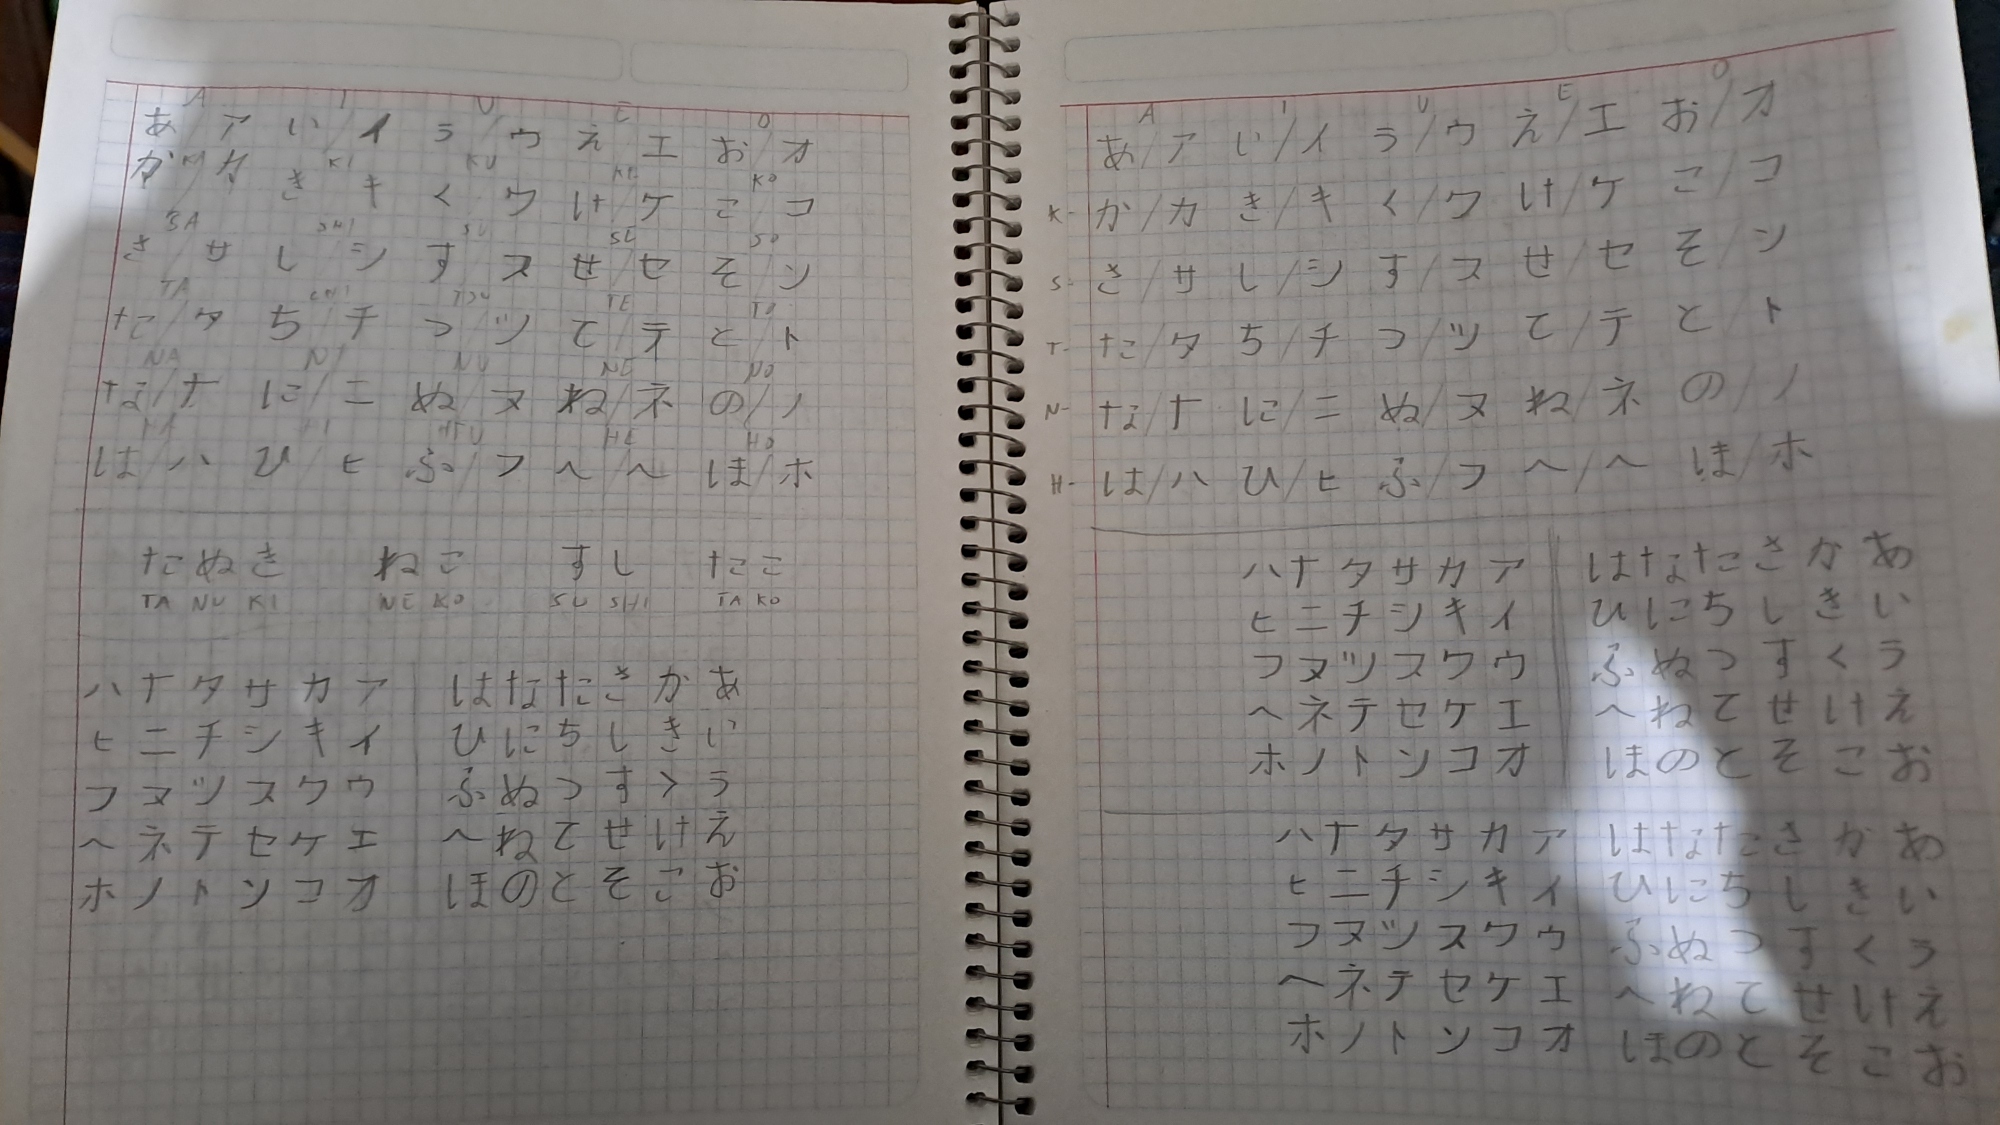 A I U E O
あ/ア い/イ う/ウ え/エ お/オ
KA KI KU KE KO
か/カ き/キ く/ク け/ケ こ/コ
SA SHI SU SE SO
さ/サ し/シ す/ス せ/セ そ/ソ
TA CHI TSU TE TO
た/タ ち/チ つ/ツ て/テ と/ト
NA NI NU NE NO
な/ナ に/ニ ぬ/ヌ ね/ネ の/ノ
HA HI HFU HE HO
は/ハ ひ/ヒ ふ/フ へ/ヘ ほ/ホ
たぬき ねこ すし たこ
TA NU KI NE KO SU SHI TA KO
ハナタサカア はなたさかあ
ヒニチシキイ ひにちしきい
フヌツスクウ ふぬつすくう
ヘネテセケエ へねてせけえ
ホノトソコオ ほのとそこお
A I U E O
あ/ア い/イ う/ウ え/エ お/オ
K- か/カ き/キ く/ク け/ケ こ/コ
S- さ/サ し/シ す/ス せ/セ そ/ソ
T- た/タ ち/チ つ/ツ て/テ と/ト
N- な/ナ に/ニ ぬ/ヌ ね/ネ の/ノ
H- は/ハ ひ/ヒ ふ/フ へ/ヘ ほ/ホ
ハナタサカア はなたさかあ
ヒニチシキイ ひにちしきい
フヌツスクウ ふぬつすくう
ヘネテセケエ へねてせけえ
ホノトソコオ ほのとそこお
ハナタサカア はなたさかあ
ヒニチシキイ ひにちしきい
フヌツスクウ ふぬつすくう
ヘネテセケエ へねてせけえ
ホノトソコオ ほのとそこお